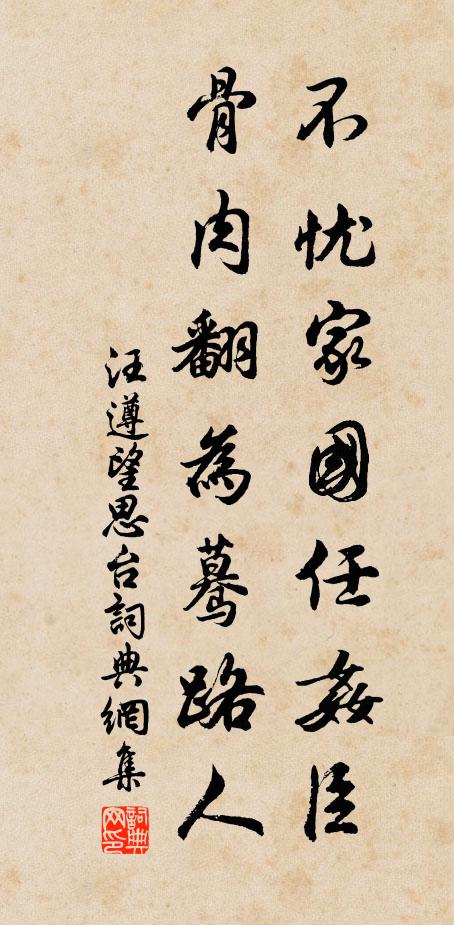 不忧家國任姦臣
骨肉翻為驀路人
汪遵望思台詞典網集
詞典网印